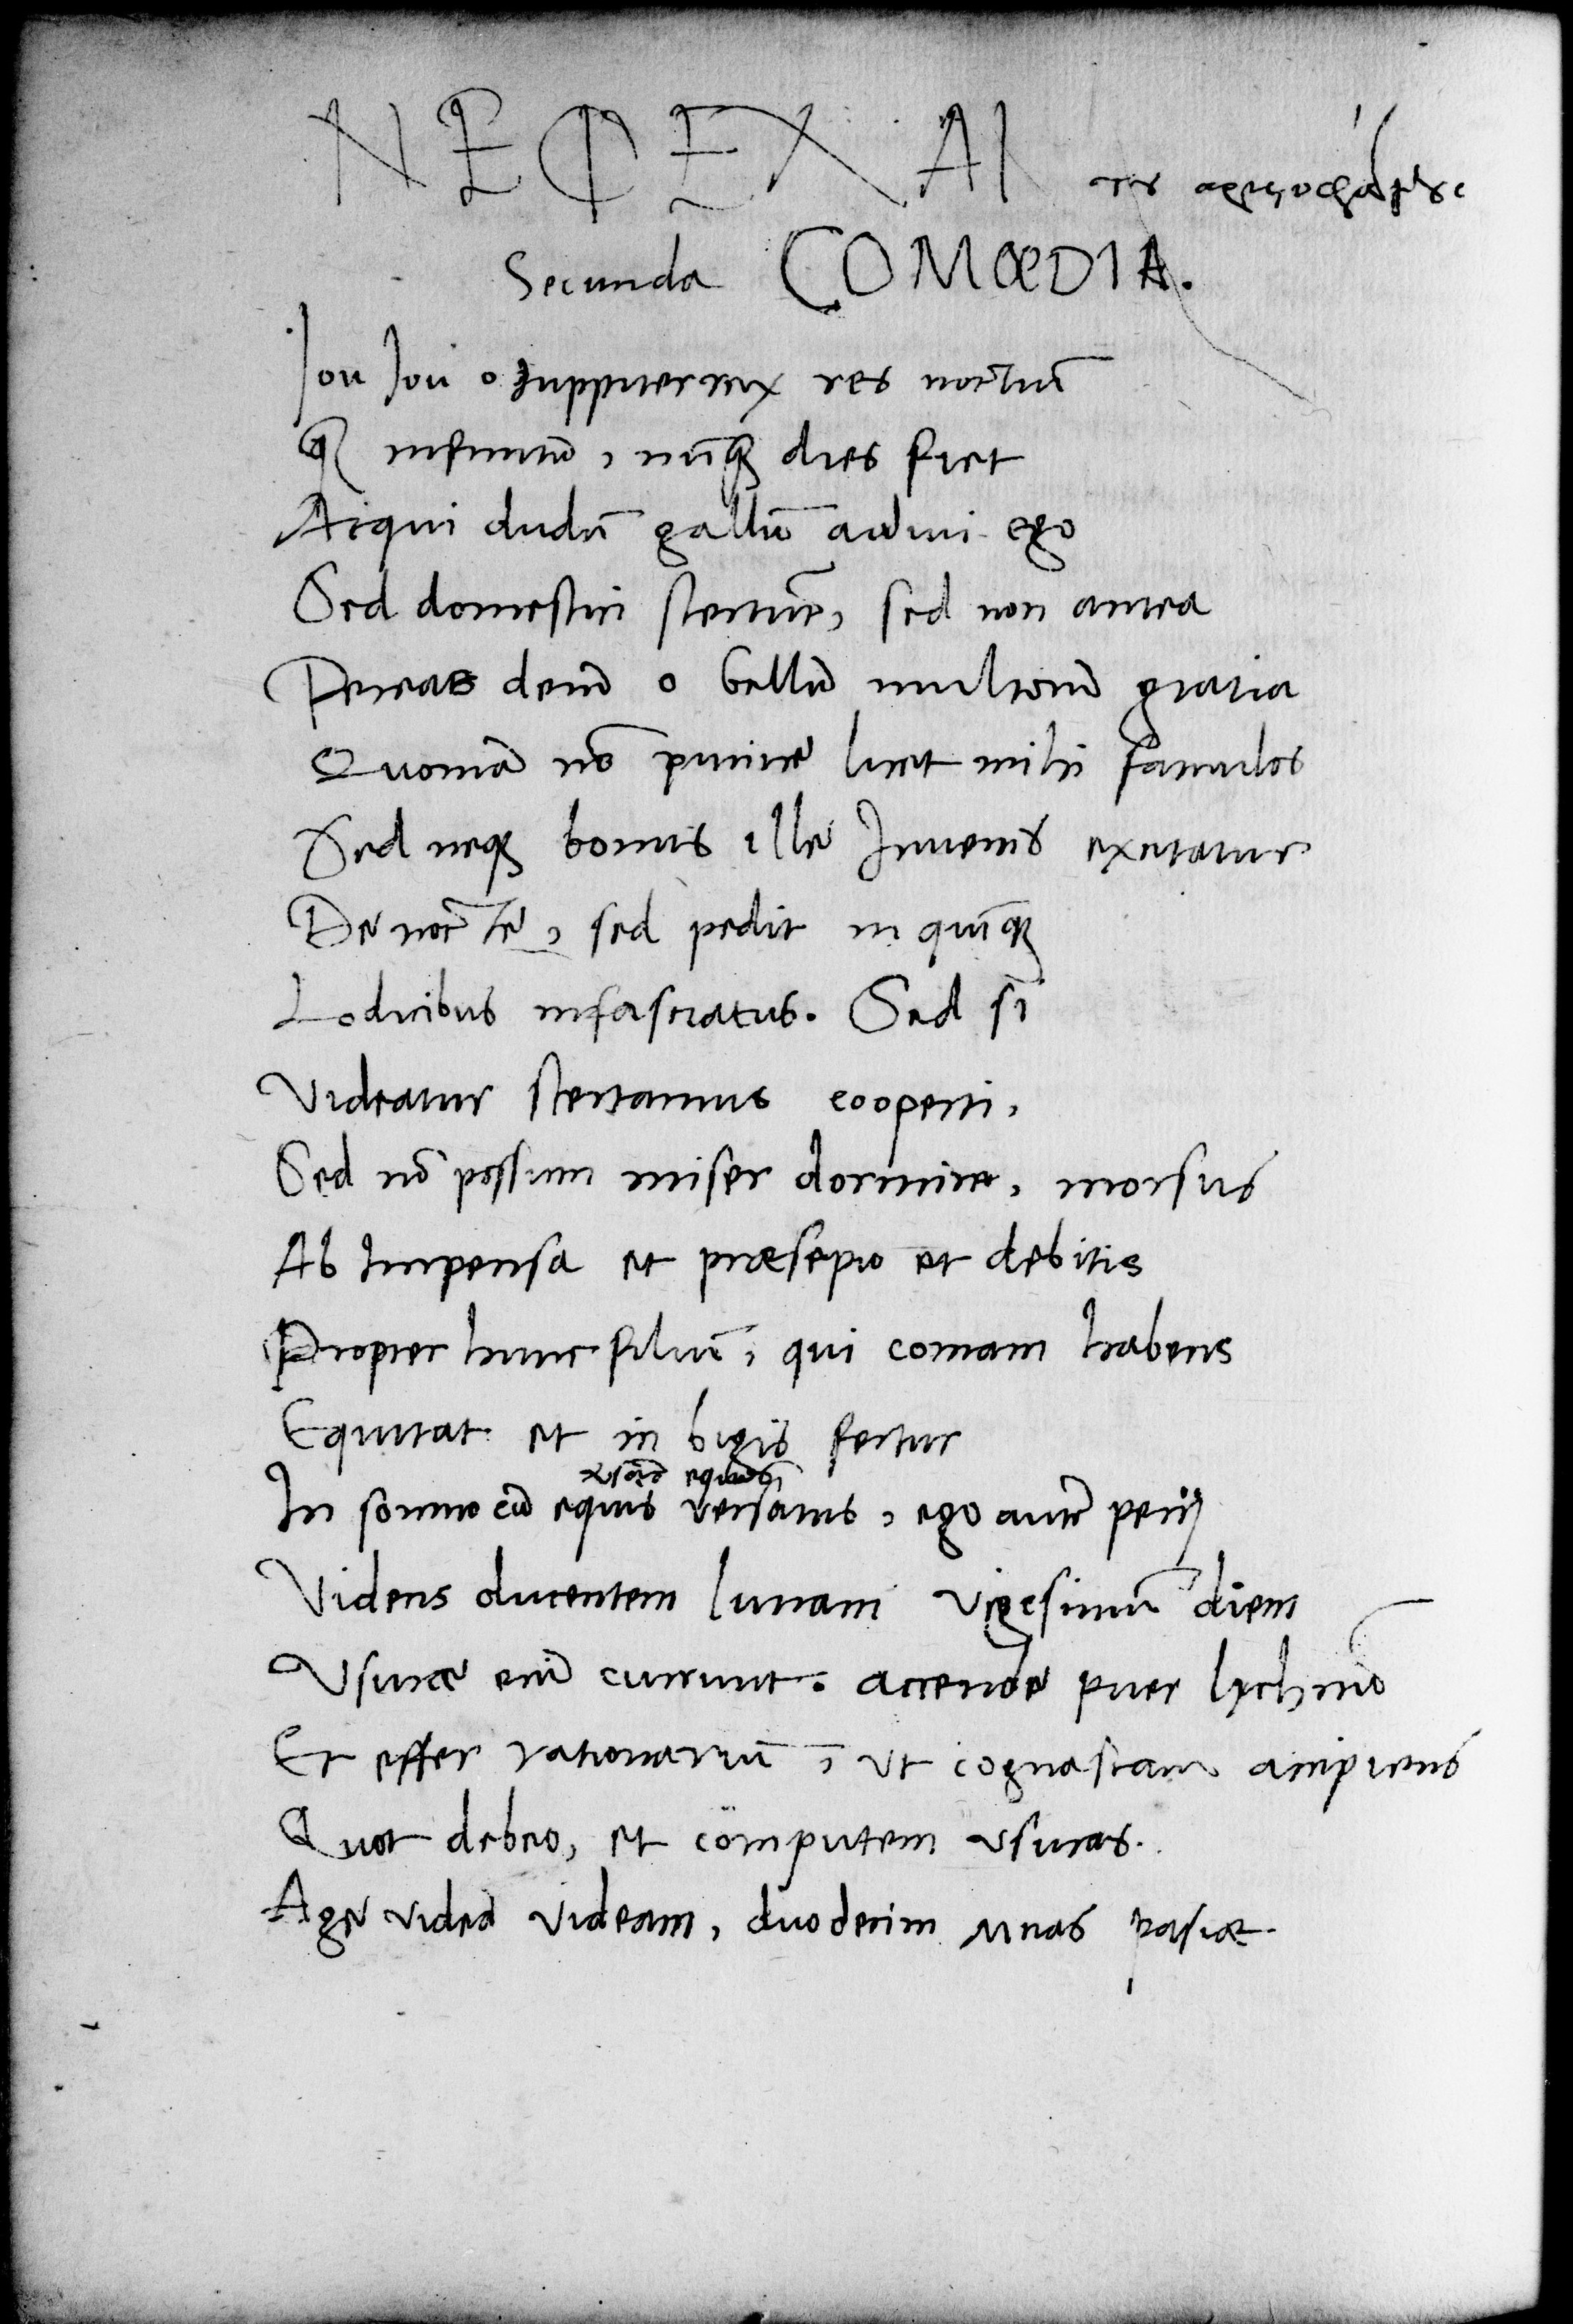 ΝΕΦΕΛΑΙ
Secunda COMŒDIA.
Iou Iou o Iuppiter rex res noctiū
q̄ infinitū, nūq̄ dies fiet
Atqui dudū gallū audiui ego
Sed domestici stertūt, sed non antea
Pereas deniq̄ o bellū multorū gratia
Quoniā nō punire licet mihi famulos
Sed neq; bonus ille Iuuenis excitatur
De nocte, sed pedit in quinq;
Lodicibus infasciatus. Sed si
Videatur stertamus cooperti,
Sed nō possum miser dormire, morsus
Ab Impensa et præsepio et debitis
Propter hunc filiū, qui comam habens
Equitat et in bigis fertur
In somno cū equis versatus, ego autē perij
Videns ducentem lunam vigesimū diem
Vsuræ enī currunt. accende puer lychnū
Et effer rationariū, ut cognoscam accipiens
Quot debeo, et computem vsuras.
Age videā videam, duodecim mnas pasiæ.